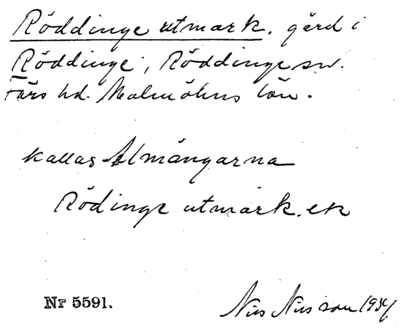 Röddinge utmark. gärd i
Röddinge, Röddinge sn.
Färs hd. Malmöhus län.
kallas Almängarna
Rödinge utmark. ek
Nr 5591.
Nils Nilsson 1934.